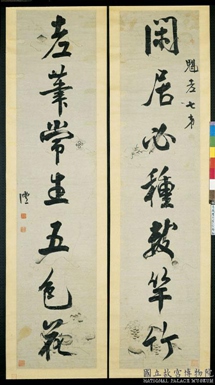 閑居必種數竿竹
老筆常生五色花
國立故宮博物院
NATIONAL PALACE MUSEUM